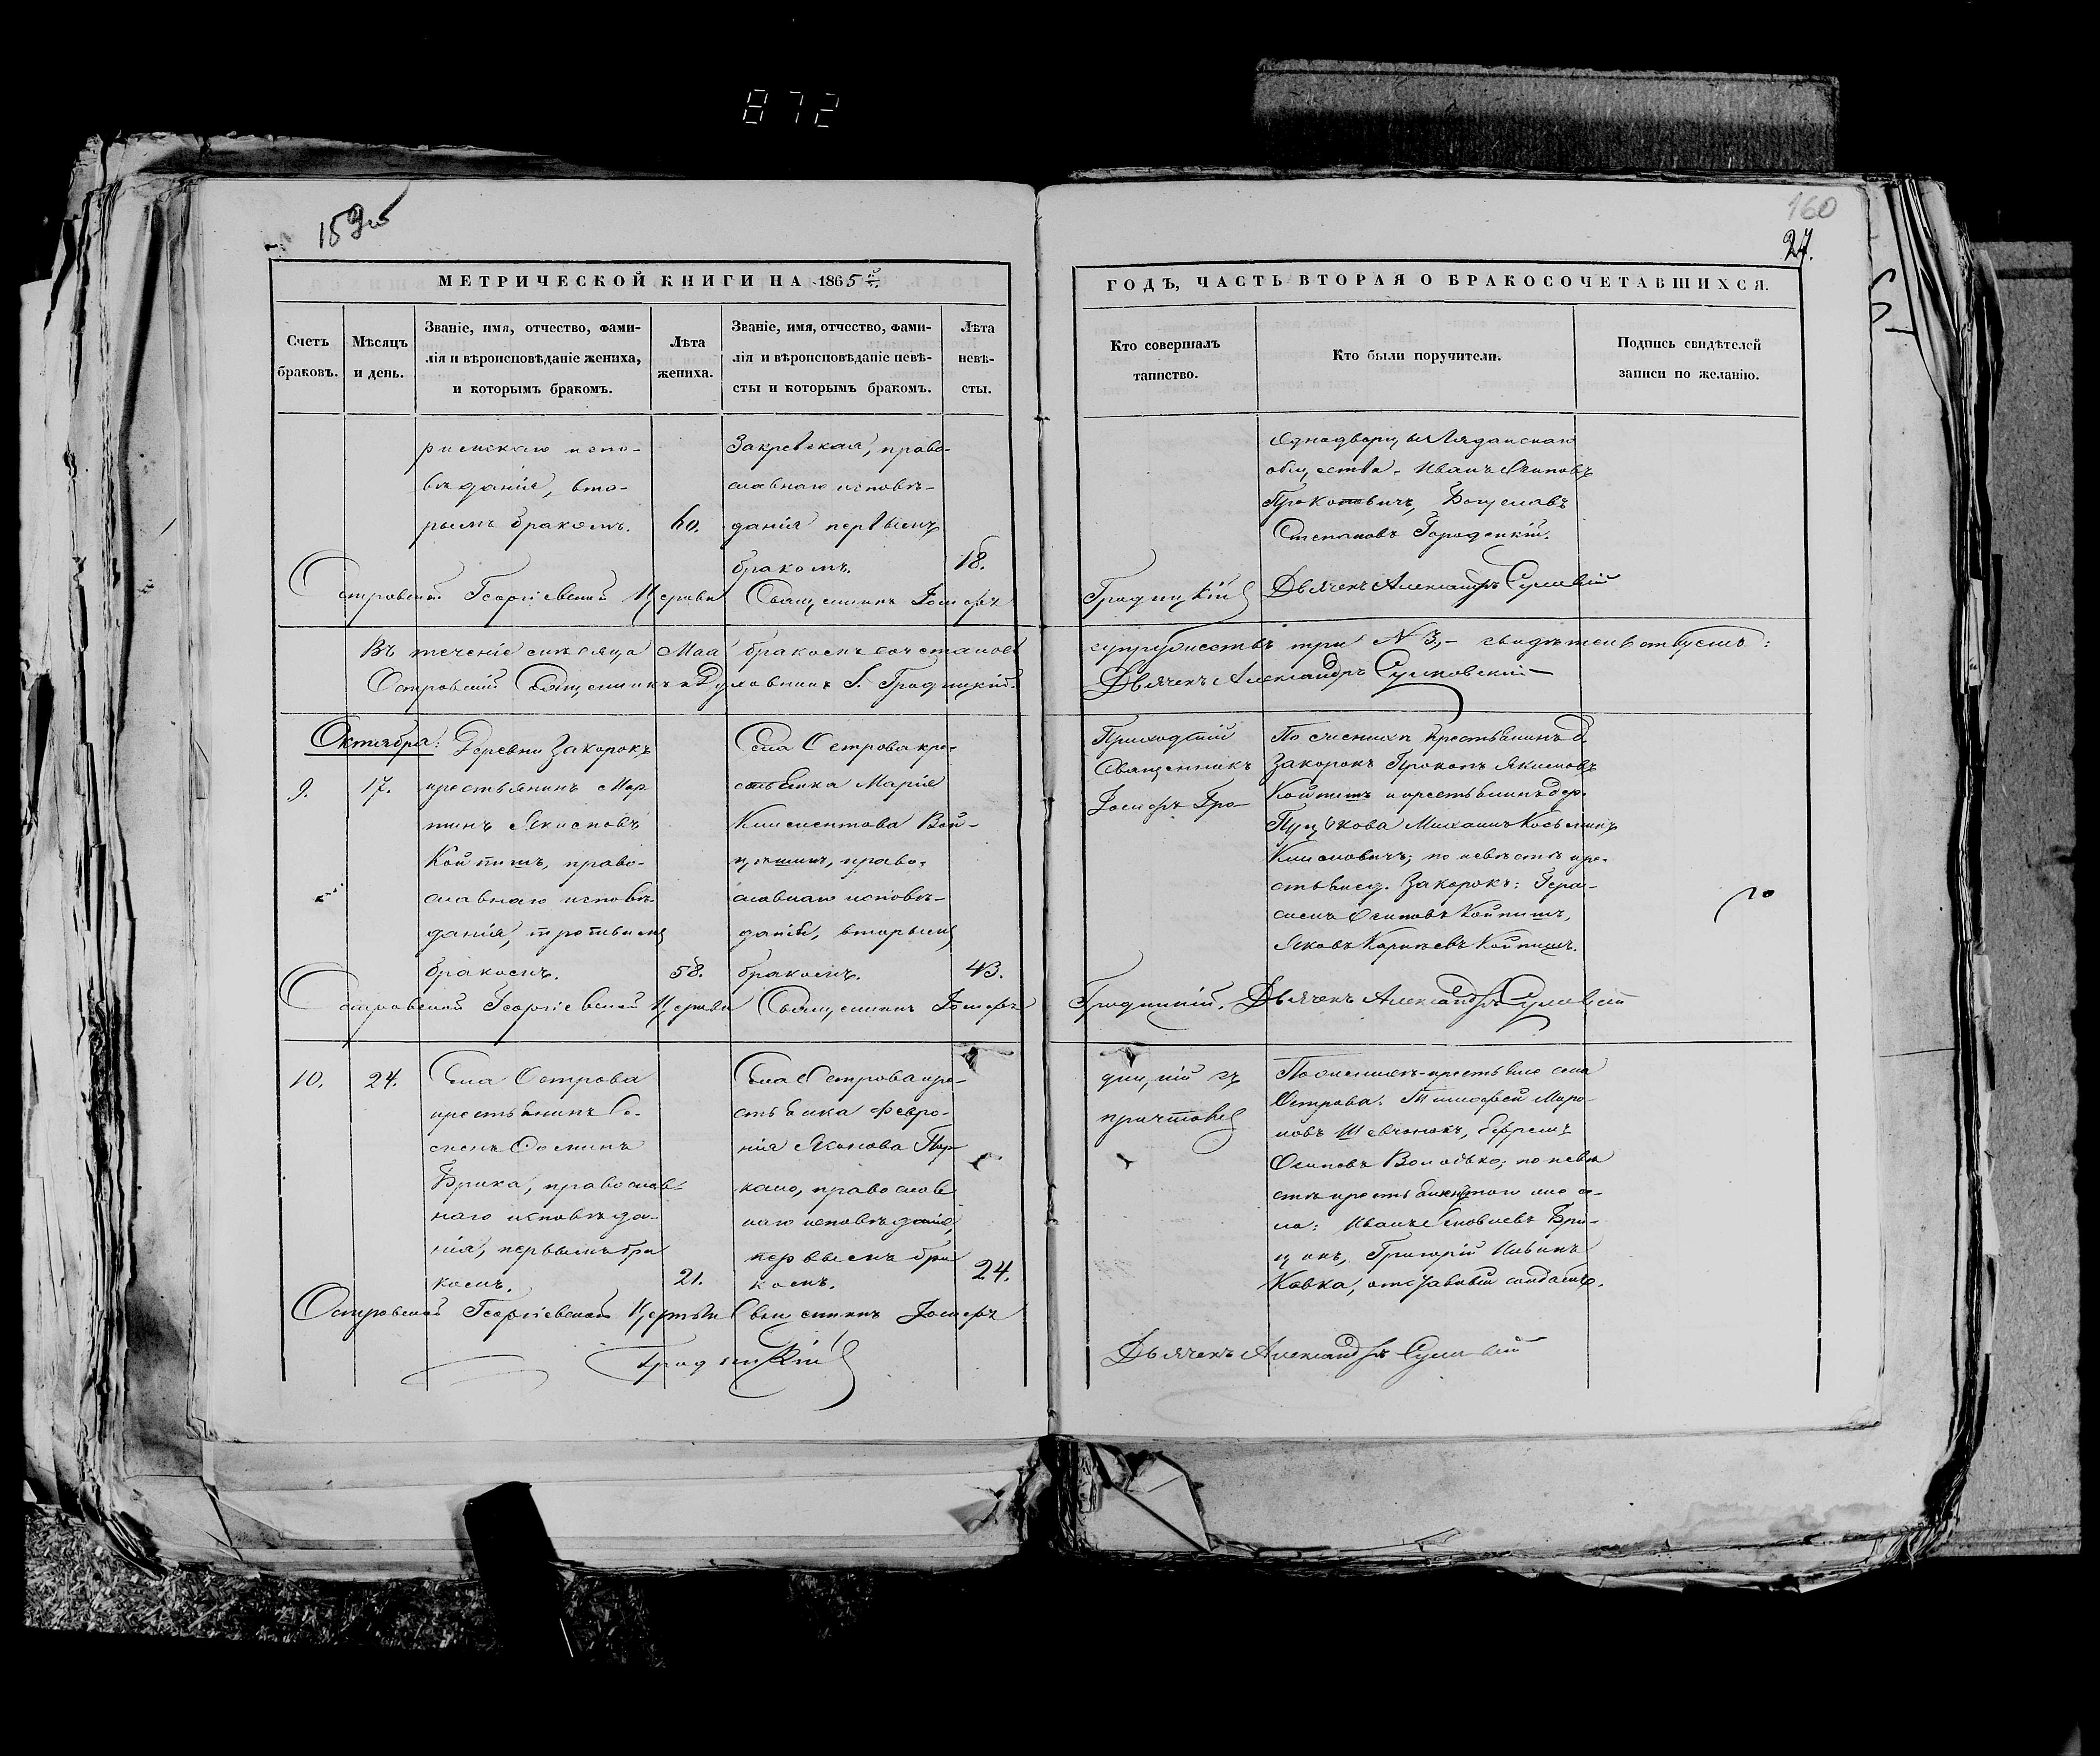 872
159об
160
27.
МЕТРИЧЕСКОЙ КНИГИ НА 1865й
ГОДЪ, ЧАСТЬ ВТОРАЯ О БРАКОСОЧЕТАВШИХСЯ.
Счетъ
браковъ.
Мѣсяцъ
и день.
Званіе, имя, отчество, фами-
лія и вѣроисповѣданіе жениха,
и которымъ бракомъ.
Лѣта
жениха.
Званіе, имя, отчество, фами-
лія и вѣроисповѣданіе невѣ-
сты и которымъ бракомъ.
Лѣта
невѣ-
сты.
Кто совершалъ
таинство.
Кто были поручители.
Подпись свидѣтелей
записи по желанію.
римскаго испо-
вѣданія, вто-
рымъ бракомъ.
60.
Закревская, право-
славнаго исповѣ-
данія первымъ
бракомъ.
18.
Однодворцы
общества - Иванъ Осиповъ
Прокоповичъ,
Степановъ Городецкій.
Островской Георгіевской Церкви Священникъ Іосифъ
Гродицкій Дьячекъ Александръ
Въ теченіе мѣсяца Мая бракомъ сочетанов
супружествъ три N 3,- свидѣтельствуемъ:
Островскій Священникъ Духовникъ І. Гродицкій.
Дьячекъ Александръ Сулковскій
Октября:
9.
17.
Деревни Закорокъ
крестьянинъ Мар
тинъ Якимовъ
Койпишъ, право-
славнаго исповѣ-
данія, третьимъ
бракомъ.
58.
Села Острова кре-
стьянка Марія
Климентова Вой-
православнаго исповѣ-
данія, вторымъ
бракомъ.
43.
Приходскій
Священникъ
Іосифъ Гро-
По женихѣ крестьянинъ д.
Закорокъ Прокопъ Якимовъ
Койпишъ и крестьянинъ дер.
Михаилъ Косьминъ
Климовичъ; по невѣстѣ кре-
стьяне д. Закорокъ: Гера-
симъ Осиповъ Койпишъ,
Яковъ Корнѣевъ Койпишъ.
Островской Георгіевской Церкви Священникъ Іосифъ
Гродицкій. Дьячекъ Александръ
10.
24.
Села Острова
крестьянинъ Се-
менъ Фоминъ
Брика, православ-
наго исповѣда-
нія, первымъ бра
комъ.
21.
Села Острова кре-
стьянка Февро-
нія Яковова
православ
наго исповѣданія,
первымъ бра
комъ.
24.
дицкій съ
причтомъ
По женихѣ-крестьяне села
Острова. Тимофей Миро-
новъ Шевчонокъ, Ефремъ
Осиповъ Володько; по невѣ
стѣ крестьяне того же се-
ла: Иванъ Яковлевъ Бри-
Григорій Ильинъ
Кавка, отставный солдатъ.
Островской Георгіевской Церкви Священникъ Іосифъ
Гродицкій
Дьячекъ Александръ